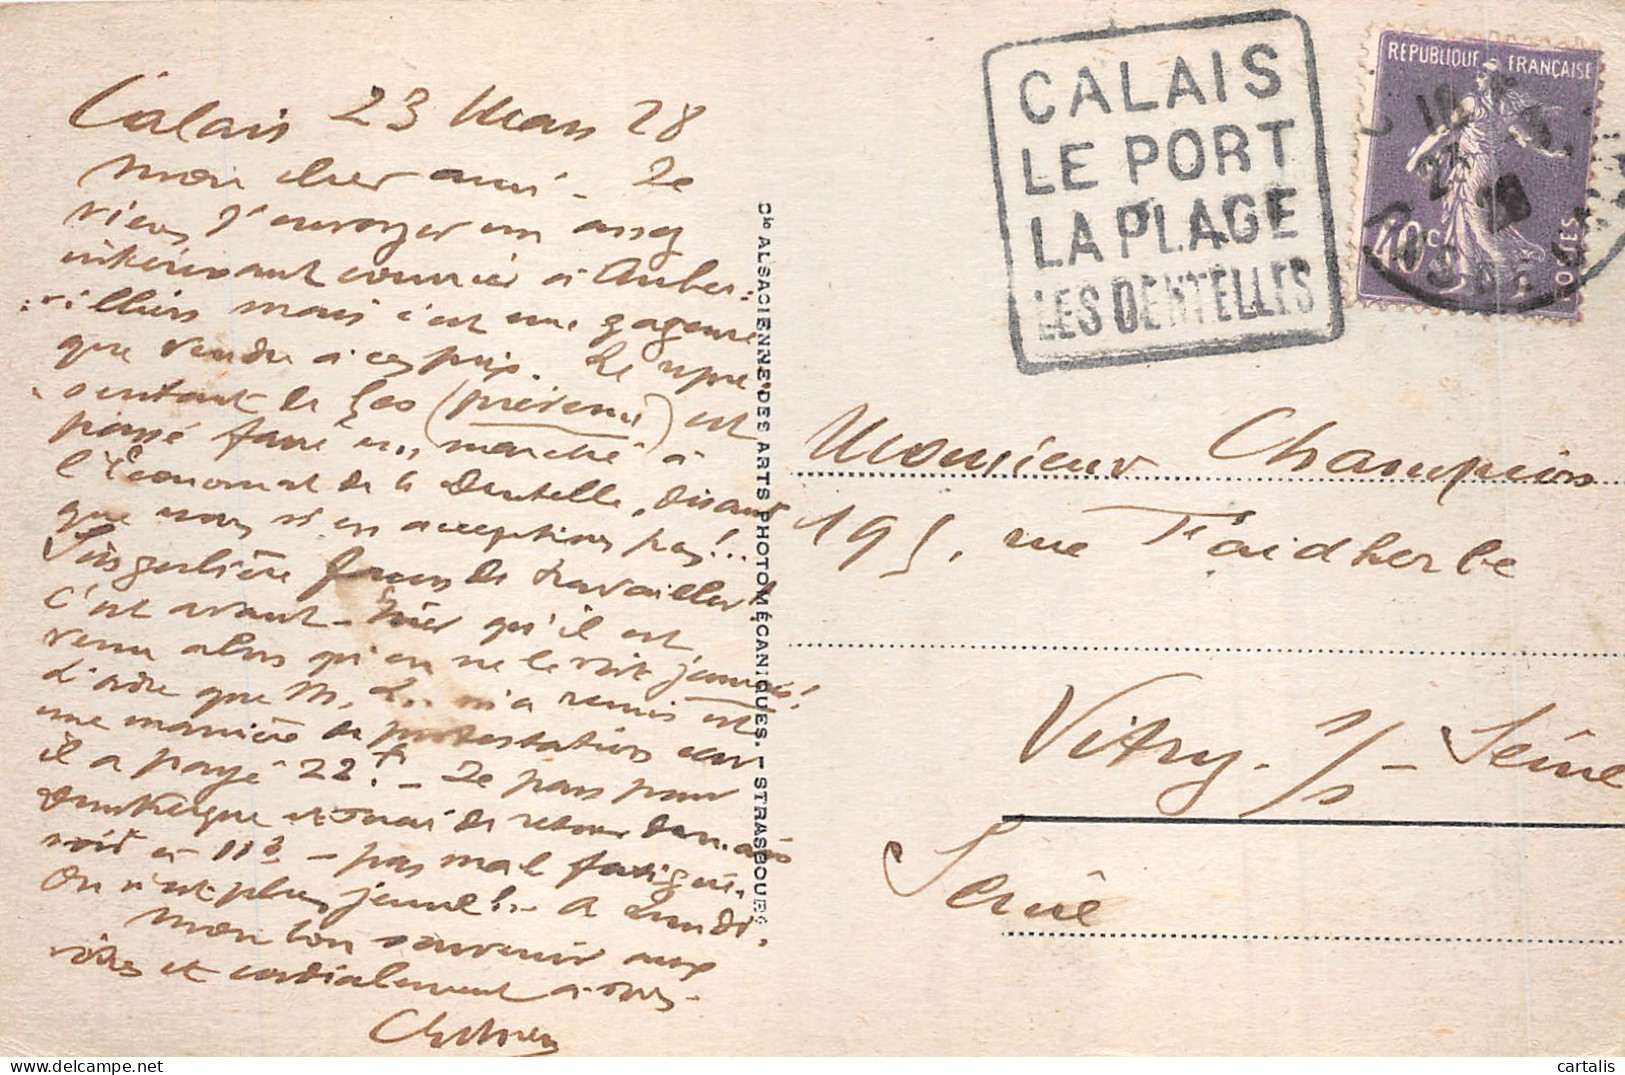 Calais 23 Mars 28
Mon cher ami - Je
viens d'envoyer un assez
intéressant courrier à Auber-
villiers mais c'est une gageure
que vendre à ces prix. Le repré
sentant de (prévenu) est
passé faire un marché à
l'Économat de la Dentelle, disant
que nous n'en acceptions pas!..
Singulière façon de travailler!
c'est avant-hier qu'il est
venu alors qu'on ne le voit jamais!
L'ordre que M. L... m'a remis est
une manière de protestation car
il a payé 22f - Je pars pour
Dunkerque et serai de retour demain
soir à 11h - pas mal fatigué.
On n'est plus jeune!.. A Lundi.
Mon bon souvenir aux
vôtres et cordialement à vous.
Cie ALSACIENNE DES ARTS PHOTOMÉCANIQUES. - STRASBOURG
CALAIS
LE PORT
LA PLAGE
LES DENTELLES
REPUBLIQUE FRANÇAISE
40c
POSTES
Monsieur Champion
195, rue Faidherbe
Vitry - s/s - Seine
Seine
cartalis